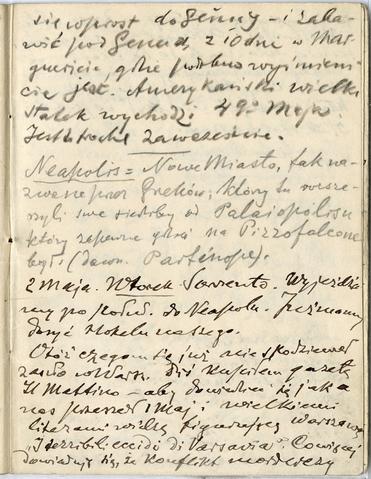 się wprost do Genuy – i zaba-
wić pod Genuą, z 10 dni w Mar-
guericie, gdzie podobno wyśmieni-
cie jest. Amerykański wielki
statek wychodzi 49° Maja.
Jest trochę zawcześnie.
Neapolis = Nowe Miasto, tak na-
zwane przez Greków, który tu
swe siedziby od Palaiopolisu
który zapewne gdzieś na Pizzofalcone
był. (dawn. Partenope).
2 Maja. Wtorek Sorrento. Wyjeżdża-
my po połud. do Neapolu. Już mamy
dosyć Hotelu naszego.
Otóż czegom się już nie spodziewał
zaszło w Warsz. Dziś kupiłem gazetę
Il Mattino – aby dowiedzieć się jak
nas przeszedł 1 Maj i wielkiemi
literami widzę figurującą Warszawę
„I terribili eccidi di Varsavia". Co więcej
dowiaduję się, że konflikt morderczy